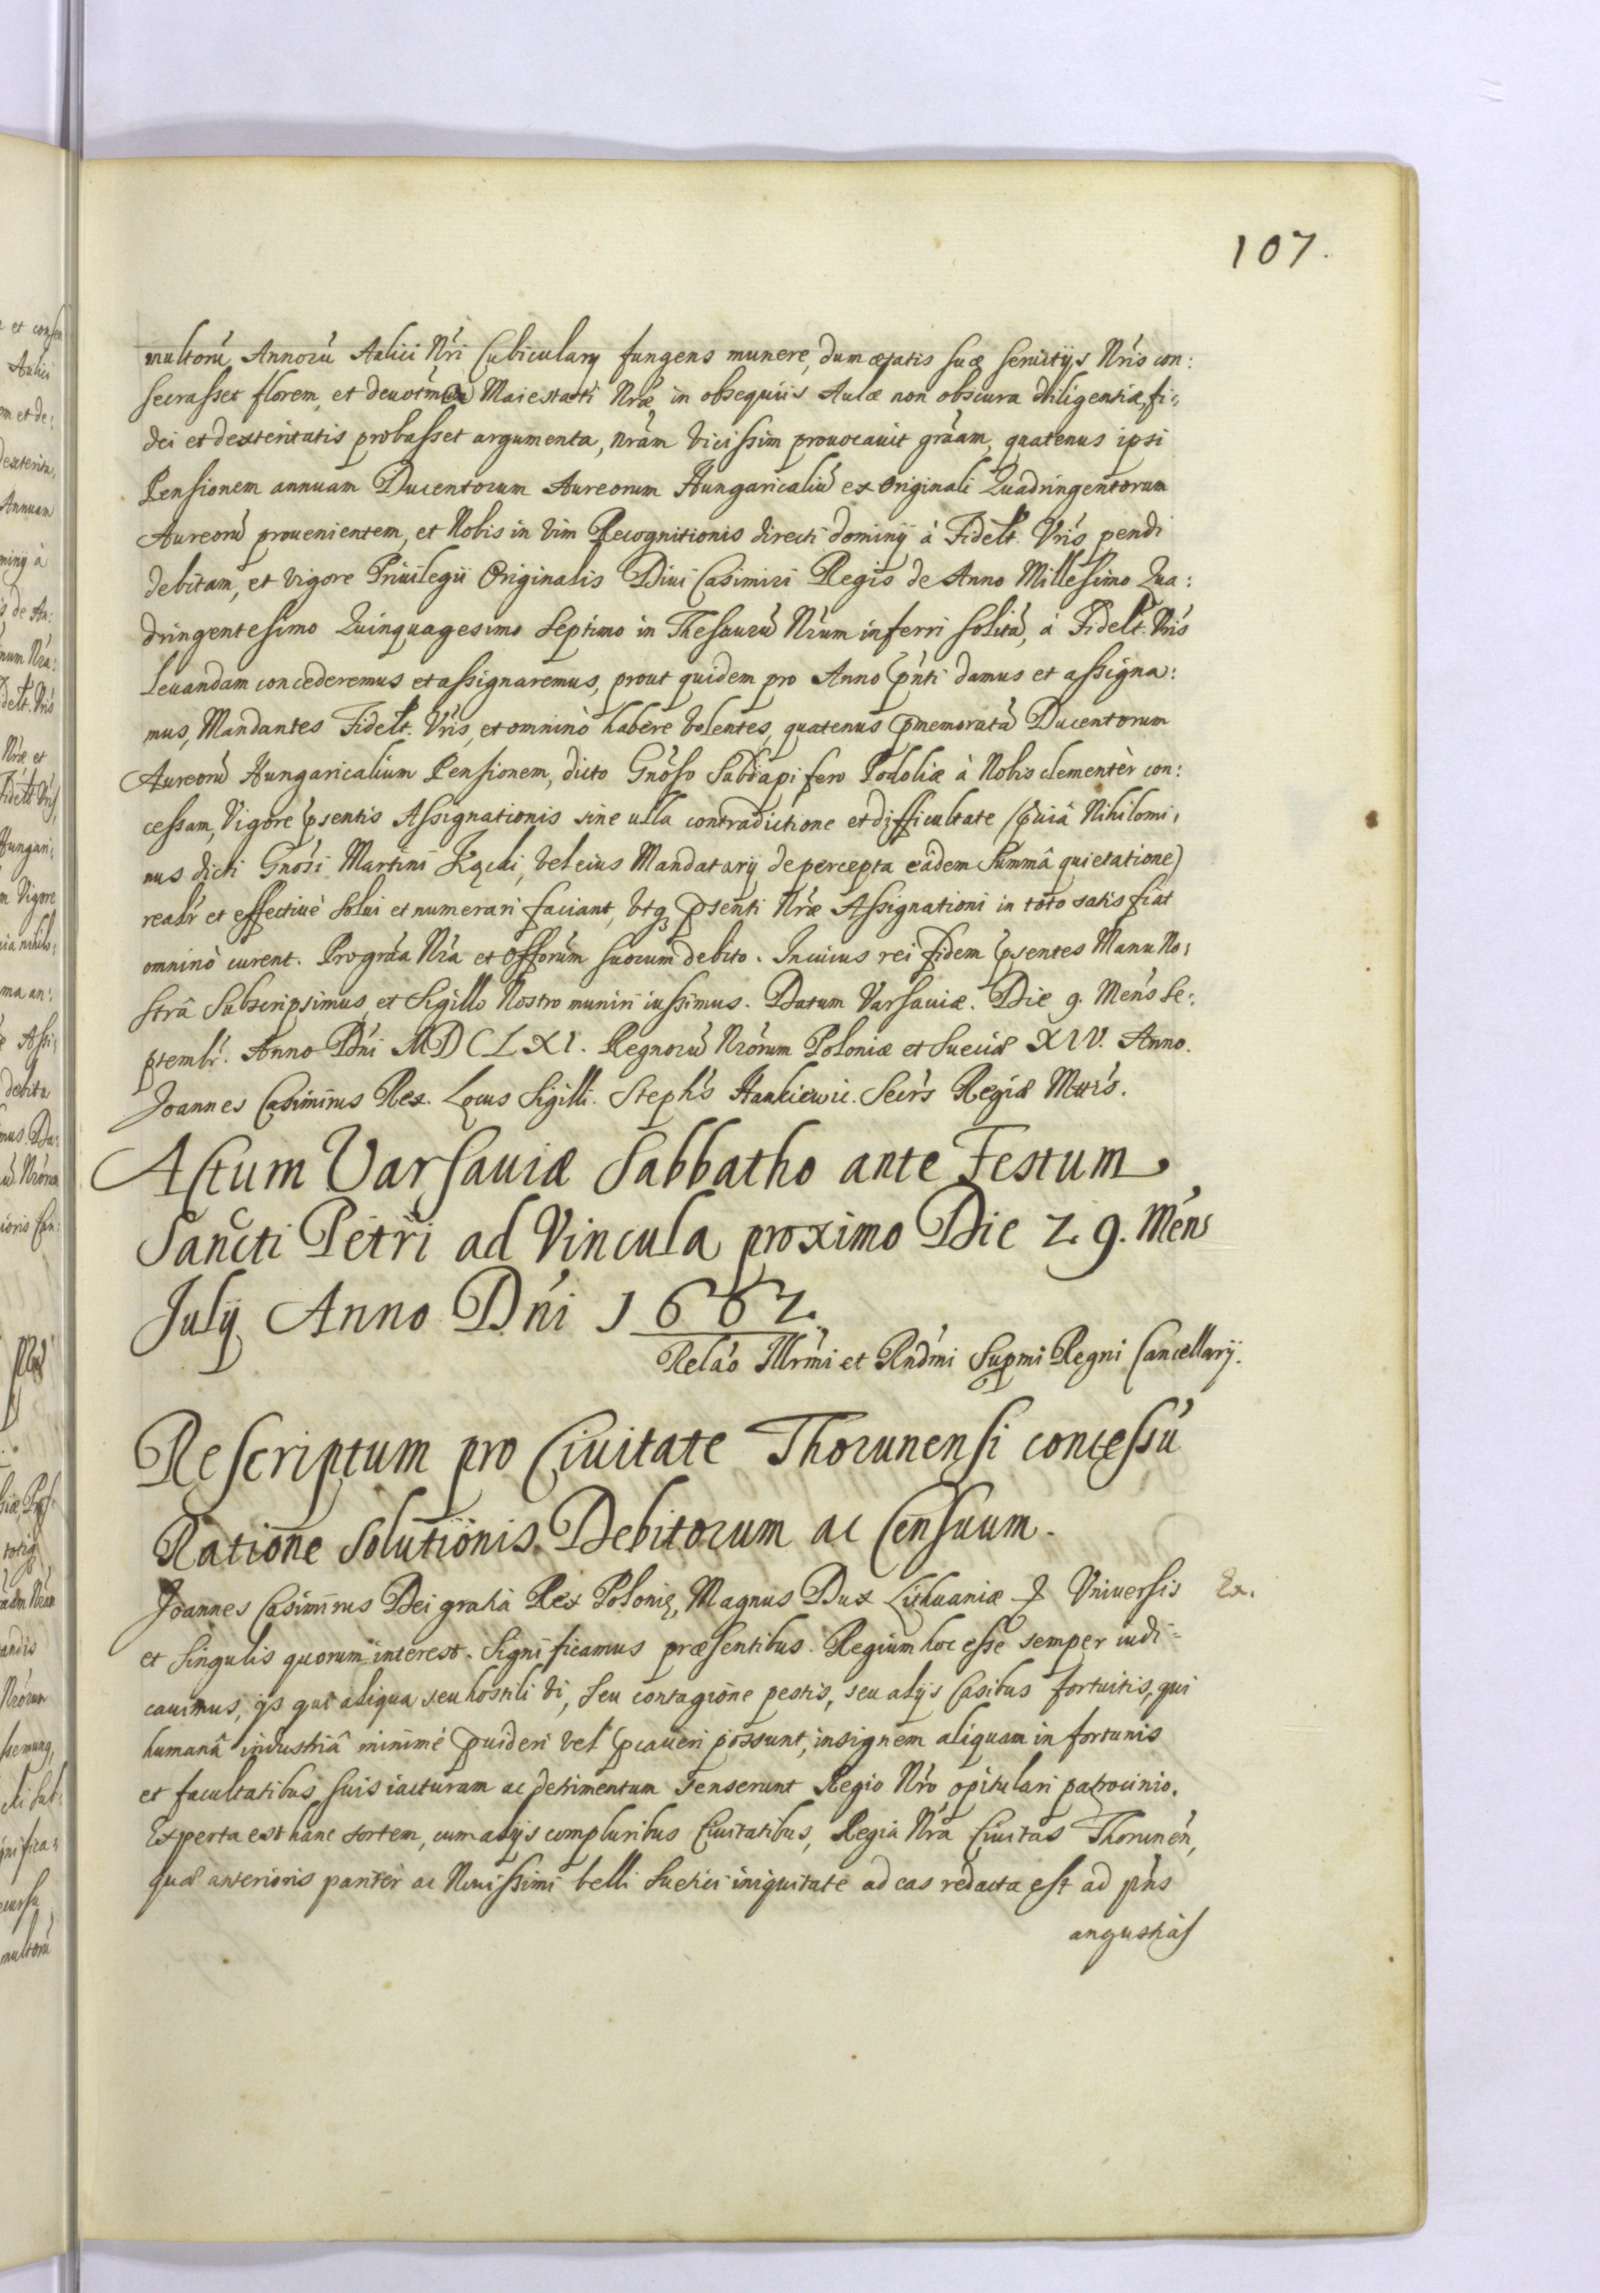 107.
multorũ Annorũ Aulici Nri Cubiculary fungens munere, dum ætatis suæ seruitijs Nris con:
secrasset florem, et Maiestati Nræ in obsequiis Aulæ non obscura diligentiæ, fi=
dei et dexteritatis probasset argumenta, nrãm vicissim prouocauit grãam, quatenus ipsi
Pensionem annuam Ducentorum Aureorum Hungaricaliũ ex Originali Quadringentorum
Aureorũ prouenientem, et Nobis in vim Recognitionis directi dominij à Fidelt. Vris pendi
debitam, et vigore Priuilegii Originalis Diui Casimiri Regis de Anno Millesimo Qua:
dringentesimo Quinquagesimo Septimo in Thesaurũ Nrum inferri solitã, à Fidelt. Vris
Leuandam concederemus et assignaremus, prout quidem pro Anno pñti damus et assigna:
mus, Mandantes Fidelt. Vris, et omninò habere volentes, quatenus pmemoratã Ducentorum
Aureorũ Hungaricalium Pensionem, dicto Gnõso Subdapifero Podoliæ à Nobis clementèr con:
cessam, Vigore psentis Assignationis sine ulla contradictione et difficultate (puiâ Nihilomi,
nus dicti Gnosi Martini Kącki, vel eius Mandatarij de percepta eâdem Summâ quietatione)
realr et effectiuè solui et numerari faciant, vtq psenti Nræ Assignationi in toto satis fiat
omninò curent. Pro grãa Nra et offorũm suorum debito. In cuius rei fidem psentes Manu No:
strâ Subscripsimus, et Sigillo Nostro muniri iussimus. Datum Varsauiæ. Die 9. Mens Se:
ptembr. Anno Dñi MDCLXI. Regnorũ Nrorum Poloniæ et Sueciæ XIV. Anno.
Joannes Casimirus Rex. Locus Sigilli. Stephs Hankiewic. Secrs Regiæ Mttis.
Actum Varsauiæ Sabbatho ante Festum
Sancti Petri ad Vincula proximo Die 29. Mens
July Anno Dñi 1662.
Relão Illrmi et Rndmi Supmi Regni Cancellarij.
Rescriptum pro Ciuitate Thorunensi concessũ
Ratione Solutionis Debitorum ac Censuum.
Joannes Casimirus Dei gratiâ Rex Polonię, Magnus Dux Lithuaniæ Vniuersis Ex.
et Singulis quorum interest. Significamus præsentibus. Regium hoc esse semper iudi=
cauimus, ijs qui aliqua seu hostili vi, seu contagione pestis, seu alijs Casibus fortuitis, qui
humanâ industriâ minimè puideri vel pcaueri possunt, insignem aliquam in fortunis
et facultatibus suis iacturam ac detrimentum senserunt Regio Nro opitulari patrocinio.
Experta est hanc sortem, cum alijs compluribus Ciuitatibus, Regia Nra Ciuitas Thorunen,
quæ anterioris paritèr ac Nouissimi belli Suetici iniquitate ad eas redacta est ad pñs
angustias